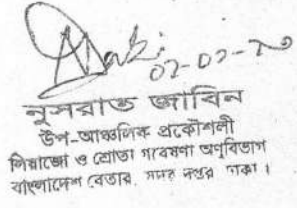 ০২-০২-২০
নুসরাত জাবিন
উপ-আঞ্চলিক প্রকৌশলী
লিয়াজোঁ ও শ্রোতা গবেষণা অণুবিভাগ
বাংলাদেশ বেতার, সদর দপ্তর ঢাকা।